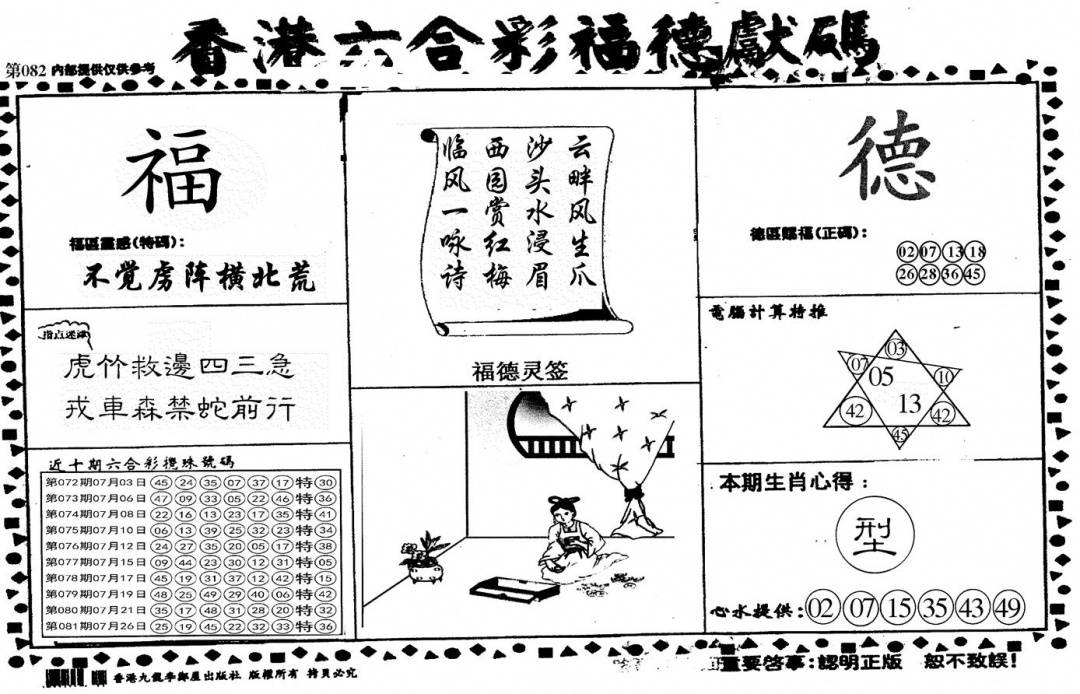 香港六合彩福德獻碼
第082 内部提供仅供参考
福
福區靈感(特碼):
不觉虏阵横北荒
指点迷津
虎竹救邊四三急
戎車森禁蛇前行
近十期六合彩攪珠號碼
第072期07月03日 45 24 35 07 37 17 特 30
第073期07月06日 47 09 33 05 22 46 特 36
第074期07月08日 22 16 13 23 17 35 特 41
第075期07月10日 06 13 39 25 32 23 特 34
第076期07月12日 24 27 35 20 05 17 特 38
第077期07月15日 09 44 23 30 12 31 特 05
第078期07月17日 45 19 31 37 12 42 特 15
第079期07月19日 48 25 49 29 40 06 特 42
第080期07月21日 35 17 48 31 28 20 特 32
第081期07月26日 25 19 45 22 32 33 特 36
云畔风生爪
沙头水浸眉
西园赏红梅
临风一咏诗
福德灵签
德
德區赐福(正碼):
02 07 13 18
26 28 36 45
電腦計算特推
03
07 05 10
42 13 42
45
本期生肖心得:
型
心水提供: 02 07 15 35 43 49
香港九龍李鄭屋出版社 版權所有 拷貝必究
重要啓事:認明正版 恕不致誤!